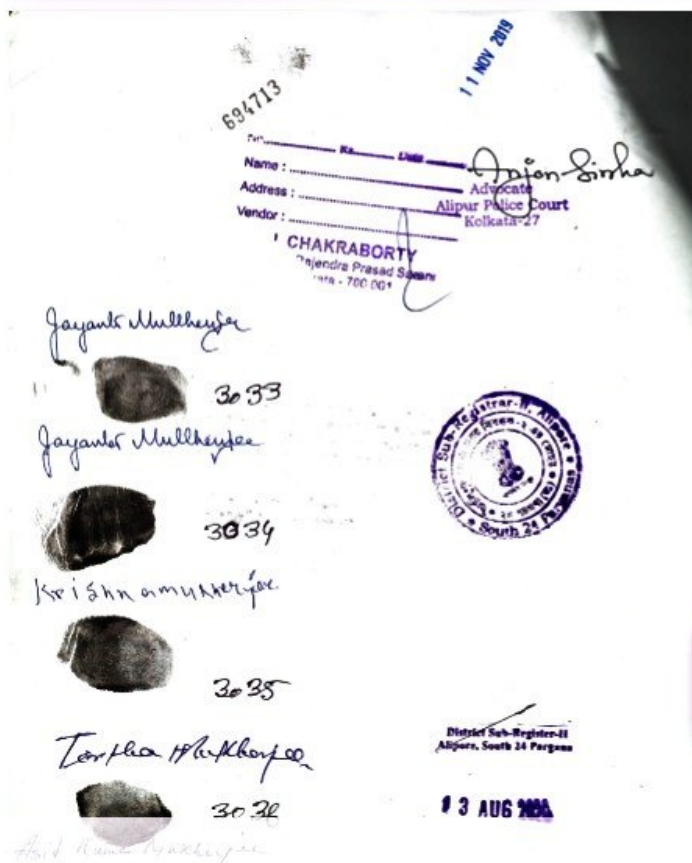 11 NOV 2019
694713
No.................... Rs.............. Date..............
Name : ..............................
Anjan Sinha
Address : ..............................
Advocate
Alipur Police Court
Vendor : ..............................
Kolkata-27
CHAKRABORTY
Rajendra Prasad Sarani
700 001
Jayanta Mukherjee
3033
Jayanta Mukherjee
3034
Krishna mukherjee
3035
Mukherjee
303
District Sub-Registrar-II, Alipore
South 24 Parganas
District Sub-Register-II
Alipore, South 24 Pargana
13 AUG
Asit Kumar Mukherjee